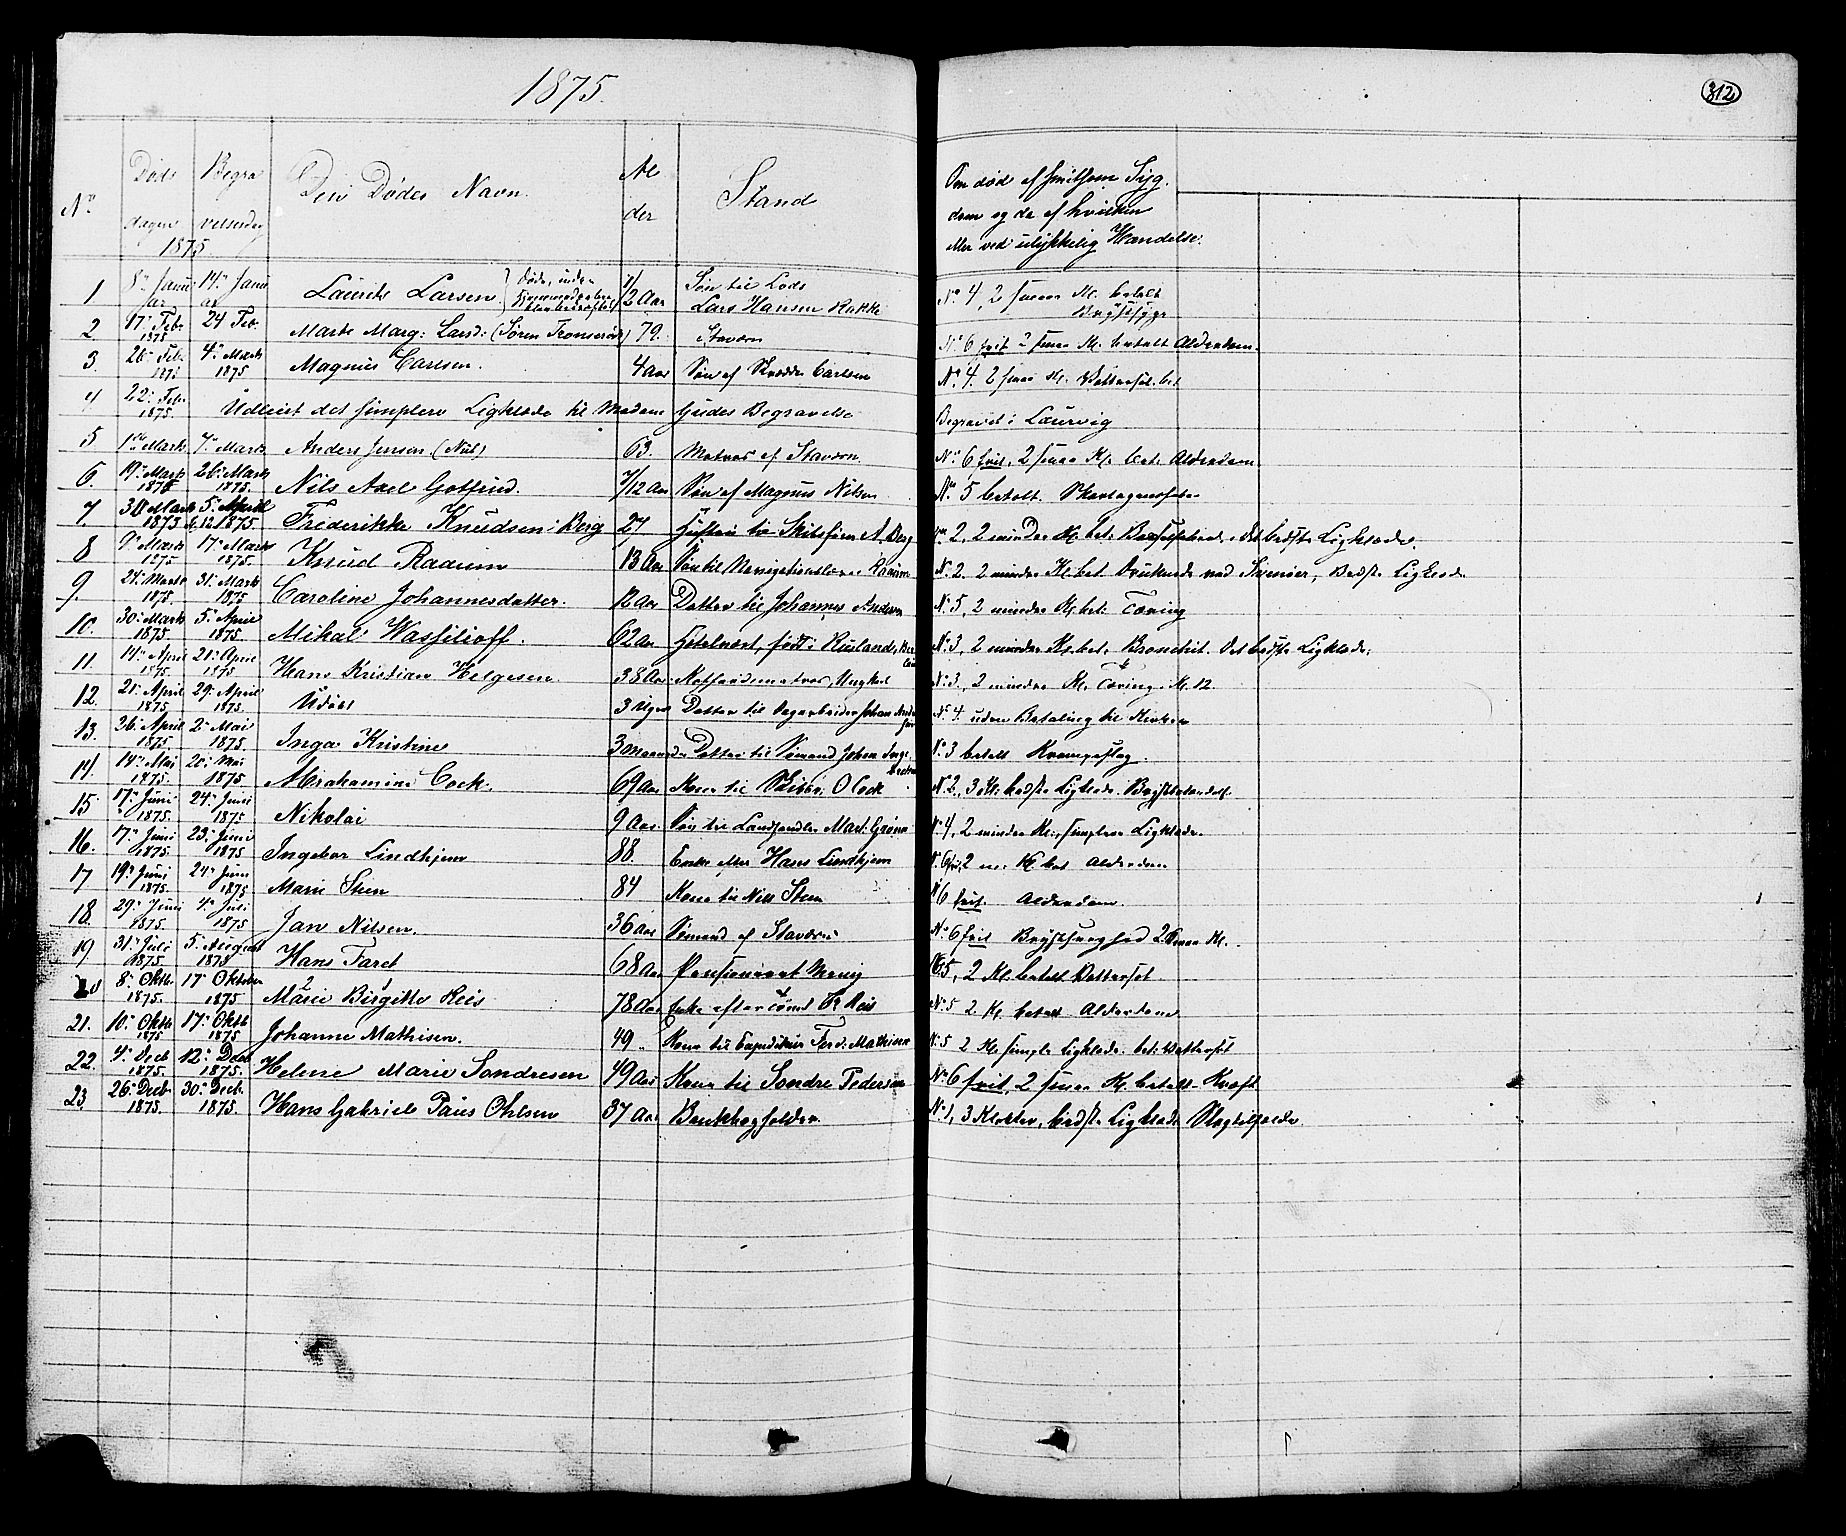 1875.
312
No
Døds
dagen
Begra
velsesdag
1875.
Den Dødes Navn.
Al
der
Stand
Om død af smitsom Syg
dom og da af hvilken
eller ved ulykkelig Hændelse.
1 8de Janu 14de Janu Laurits Larsen 1/2 Aar Søn til Lods
uar ar Lars Hansen Rakke No 4, 2 smaa Kl. betalt
Brystsyge
2 17. Feb. 1875 24 Feb. Marte Marg: Larsd: (Søren 79. Stavern No 6 frit 2 smaa Kl. betalt Alderdom.
3. 26. Feb. 4. Marts 1875 Magnus Carlsen. 4 Aar Søn af Carlsen No 4. 2 smaa Kl. Vattersot. bet
4 22. Feb. 1875. Udleiet det simplere Liglæde til Madam Gudes Begravelse Begravet i Laurvig
5 1ste Marts 7. Marts Anders Jensen (Nut) 63. Matros af Stavern. No 6 frit, 2 smaa Kl. bet. Alderdom
6. 19. Marts 1875 26. Marts 1875. Nils Axel Gotfried. 7/12 Aar Søn af Magnus Nilsen No 5 betalt.
7. 30 Marts 1875 5. April 1875. Frederikke Knudsen: Berg 27 Hustru til A. Berg No 2, 2 mindre Kl. bet. det bedste Liglæde.
8 9. Marts 1875 17. Marts 1875. Knud Raaum 13 Aar Søn til Navigationslærer Raaum No 2. 2 mindre Kl. bet Druknede ved Svenøer, Bedste Liglæde
9. 24. Marts 1875. 31. Marts 1875 Caroline Johannesdatter. 12 Aar Datter til Johannes Andersen No 5, 2 mindre Kl. bet. Tæring
10. 30. Marts 1875 5. April 1875. Mikal Wassilioff. 62 Aar Hotelvært, født i Rusland, No 3, 2 mindre Kl. bet. Bronchit. Det bedste Liglæde.
11. 14. April 1875 21. April 1875 Hans Kristian Helgesen. 38 Aar Ungkarl No 3., 2 mindre Kl. Tæring. Kl. 12
12. 21. April 1875 29. April 1875. Udøbt 3 Uger Datter til Vegarbeider Johan No 4. uden Betaling til Kirken
13. 26. April 1875. 2. Mai 1875. Inga Kristine 3 Maaneder Datter til Sømand Johan No 3 betalt Krampeslag.
14. 14. Mai 1875. 20. Mai 1875 Abrahamine Cock. 69 Aar Kone til Skibsr. O Cock No 2., 3 Kl. bedste Liglæde.
15 17. Juni 1875. 24. Juni 1875 Nikolai 9 Aar. Søn til Landhandler Mart. No 4, 2 mindre Kl., simplere Liglæde.
16. 17. Juni 1875. 23. Juni 1875 Ingebor Lindhjem 88. Enke efter Hans Lindhjem No 6 frit, 2 m. Kl. bet Alderdom
17 19. Juni 1875. 24. Juni 1875 Marie Sten 84 Kone til Nils Sten No 6 frit. Alderdom.
18. 29. Juni 1875. 4. Juli 1875 Jan Nilsen. 36 Aar Sømand af Stavern No 6 frit 2 smaa Kl.
19 31. Juli 1875. 5. August 1875 Hans Faret 68 Aar Pensioneret No 5, 2 Kl. betalt Vattersot
20 8. Oktbr. 1875. 17 Oktober 1875 Marie Birgitte Reis 78 Aar Enke efter Reis No 5 2 Kl. betalt Alderdom
21. 10. Oktb 1875 17. Oktb 1875 Johanne Mathisen. 49 „ Kone til Expeditør Ferd. Mathisen No 5 2 Kl. simple Liglæde. bet. Vattersot
22. 4. Decb 1875. 12. Decb 1875. Helene Marie Sondresen 49 Aar Kone til Sondre Pedersen No 6 frit, 2 smaa Kl. betalt Kræft
23 26. Decb 1875. 30. Decb. 1875. Hans Gabriel Paus Ohlsen 37 Aar Bankbogholder. No 1, 3 Klokker, bedste Liglæde